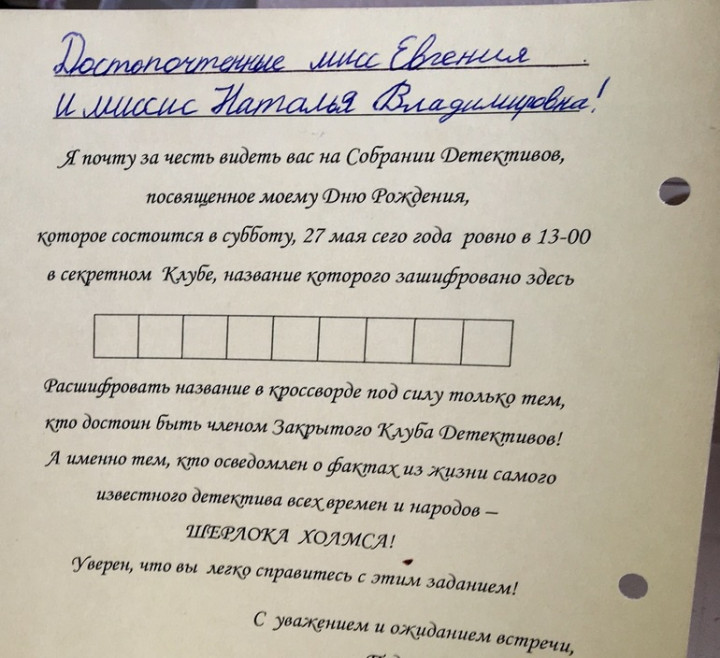 Достопочтенные мисс Евгения
и миссис Наталья Владимировна!
Я почту за честь видеть вас на Собрании Детективов,
посвященное моему Дню Рождения,
которое состоится в субботу, 27 мая сего года ровно в 13-00
в секретном Клубе, название которого зашифровано здесь
Расшифровать название в кроссворде под силу только тем,
кто достоин быть членом Закрытого Клуба Детективов!
А именно тем, кто осведомлен о фактах из жизни самого
известного детектива всех времен и народов –
ШЕРЛОКА ХОЛМСА!
Уверен, что вы легко справитесь с этим заданием!
С уважением и ожиданием встречи,